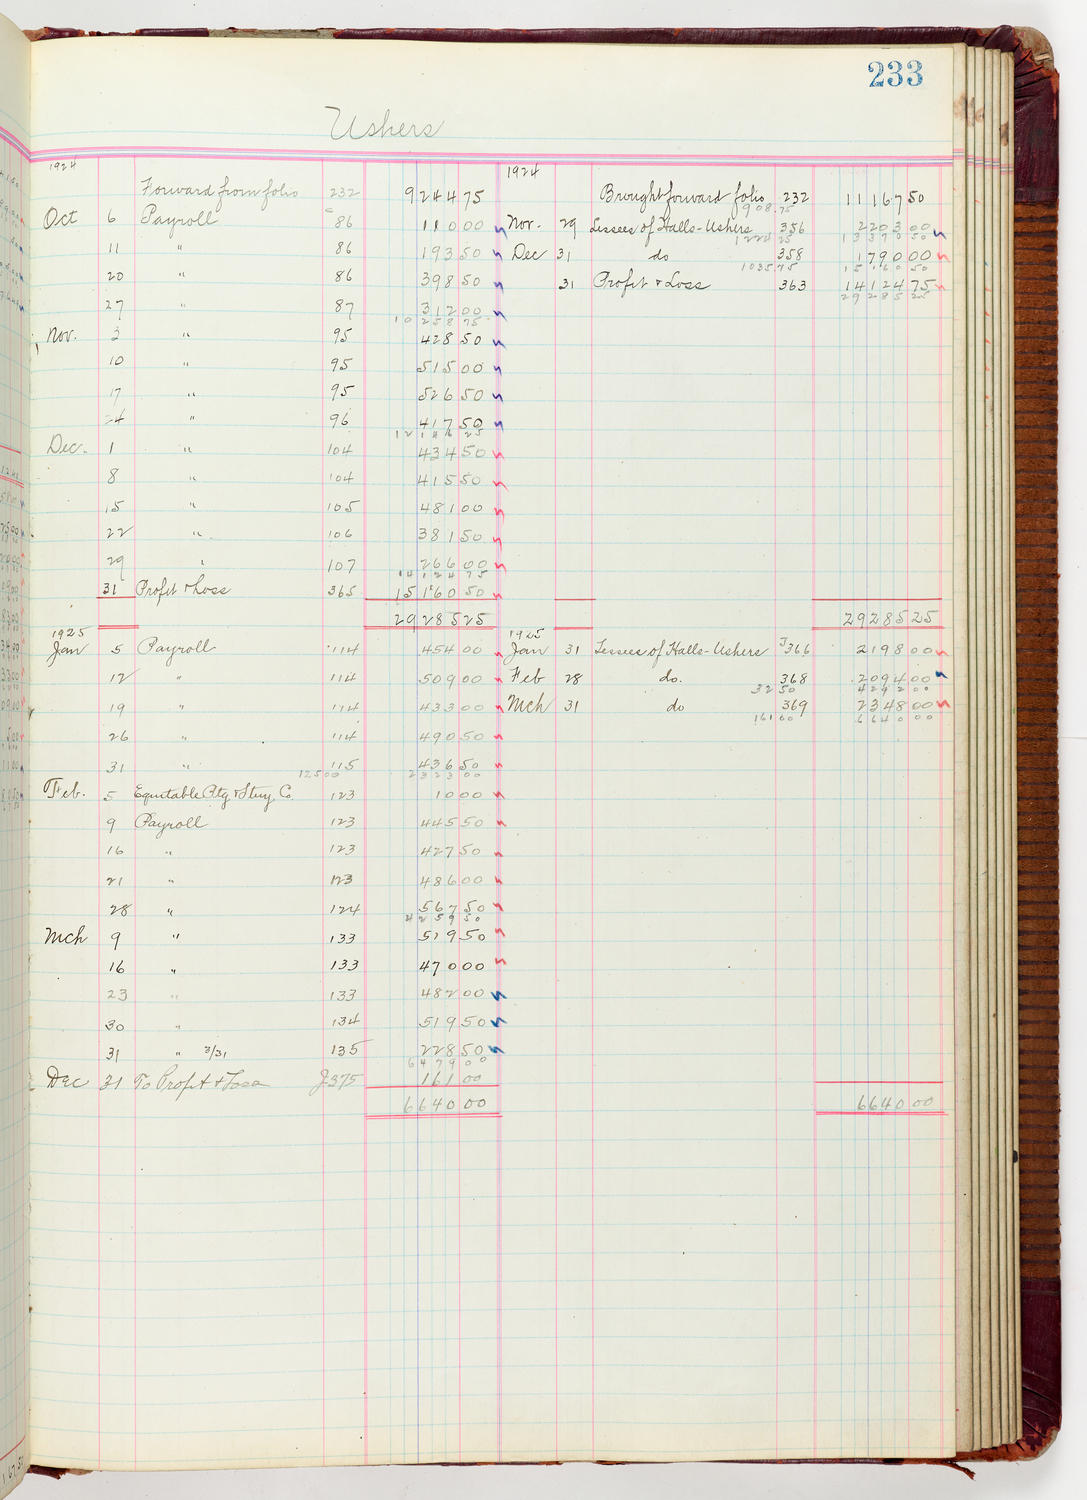 233
Ushers
1924
Forward from folio 232 9244 75
Oct 6 Payroll 86 110 00
11 " 86 193 50
20 " 86 398 50
27 " 87 312 00
10 258 75
Nov. 3 " 95 428 50
10 " 95 515 00
17 " 95 526 50
24 " 96 417 50
12 146 25
Dec. 1 " 104 434 50
8 " 104 415 50
15 " 105 481 00
22 " 106 381 50
29 " 107 266 00
14 124 75
31 Profit & Loss 365 15 160 50
29285 25
1925
Jan 5 Payroll 114 454 00
12 " 114 509 00
19 " 114 433 00
26 " 114 490 50
31 " 115 436 50
125 00 2323 00
Feb. 5 Equitable Ptg & Stuy Co. 123 10 00
9 Payroll 123 445 50
16 " 123 427 50
21 " 123 486 00
28 " 124 567 50
4259 50
Mch 9 " 133 519 50
16 " 133 470 00
23 " 133 482 00
30 " 134 519 50
31 " 3/31 135 228 50
6479 00
Dec 31 To Profit & Loss J375 161 00
6640 00
1924
Brought forward folio 232 11167 50
908.75
Nov. 29 Lessees of Halls-Ushers 356 2203 00
1224 25 13370 50
Dec 31 do 358 1790 00
1035.75 15160 50
31 Profit & Loss 363 14124 75
29285 25
29285 25
1925
Jan 31 Lessees of Halls-Ushers J366 2198 00
Feb 28 do. 368 2094 00
32 50 4292 00
Mch 31 do 369 2348 00
161 00 6640 00
6640 00